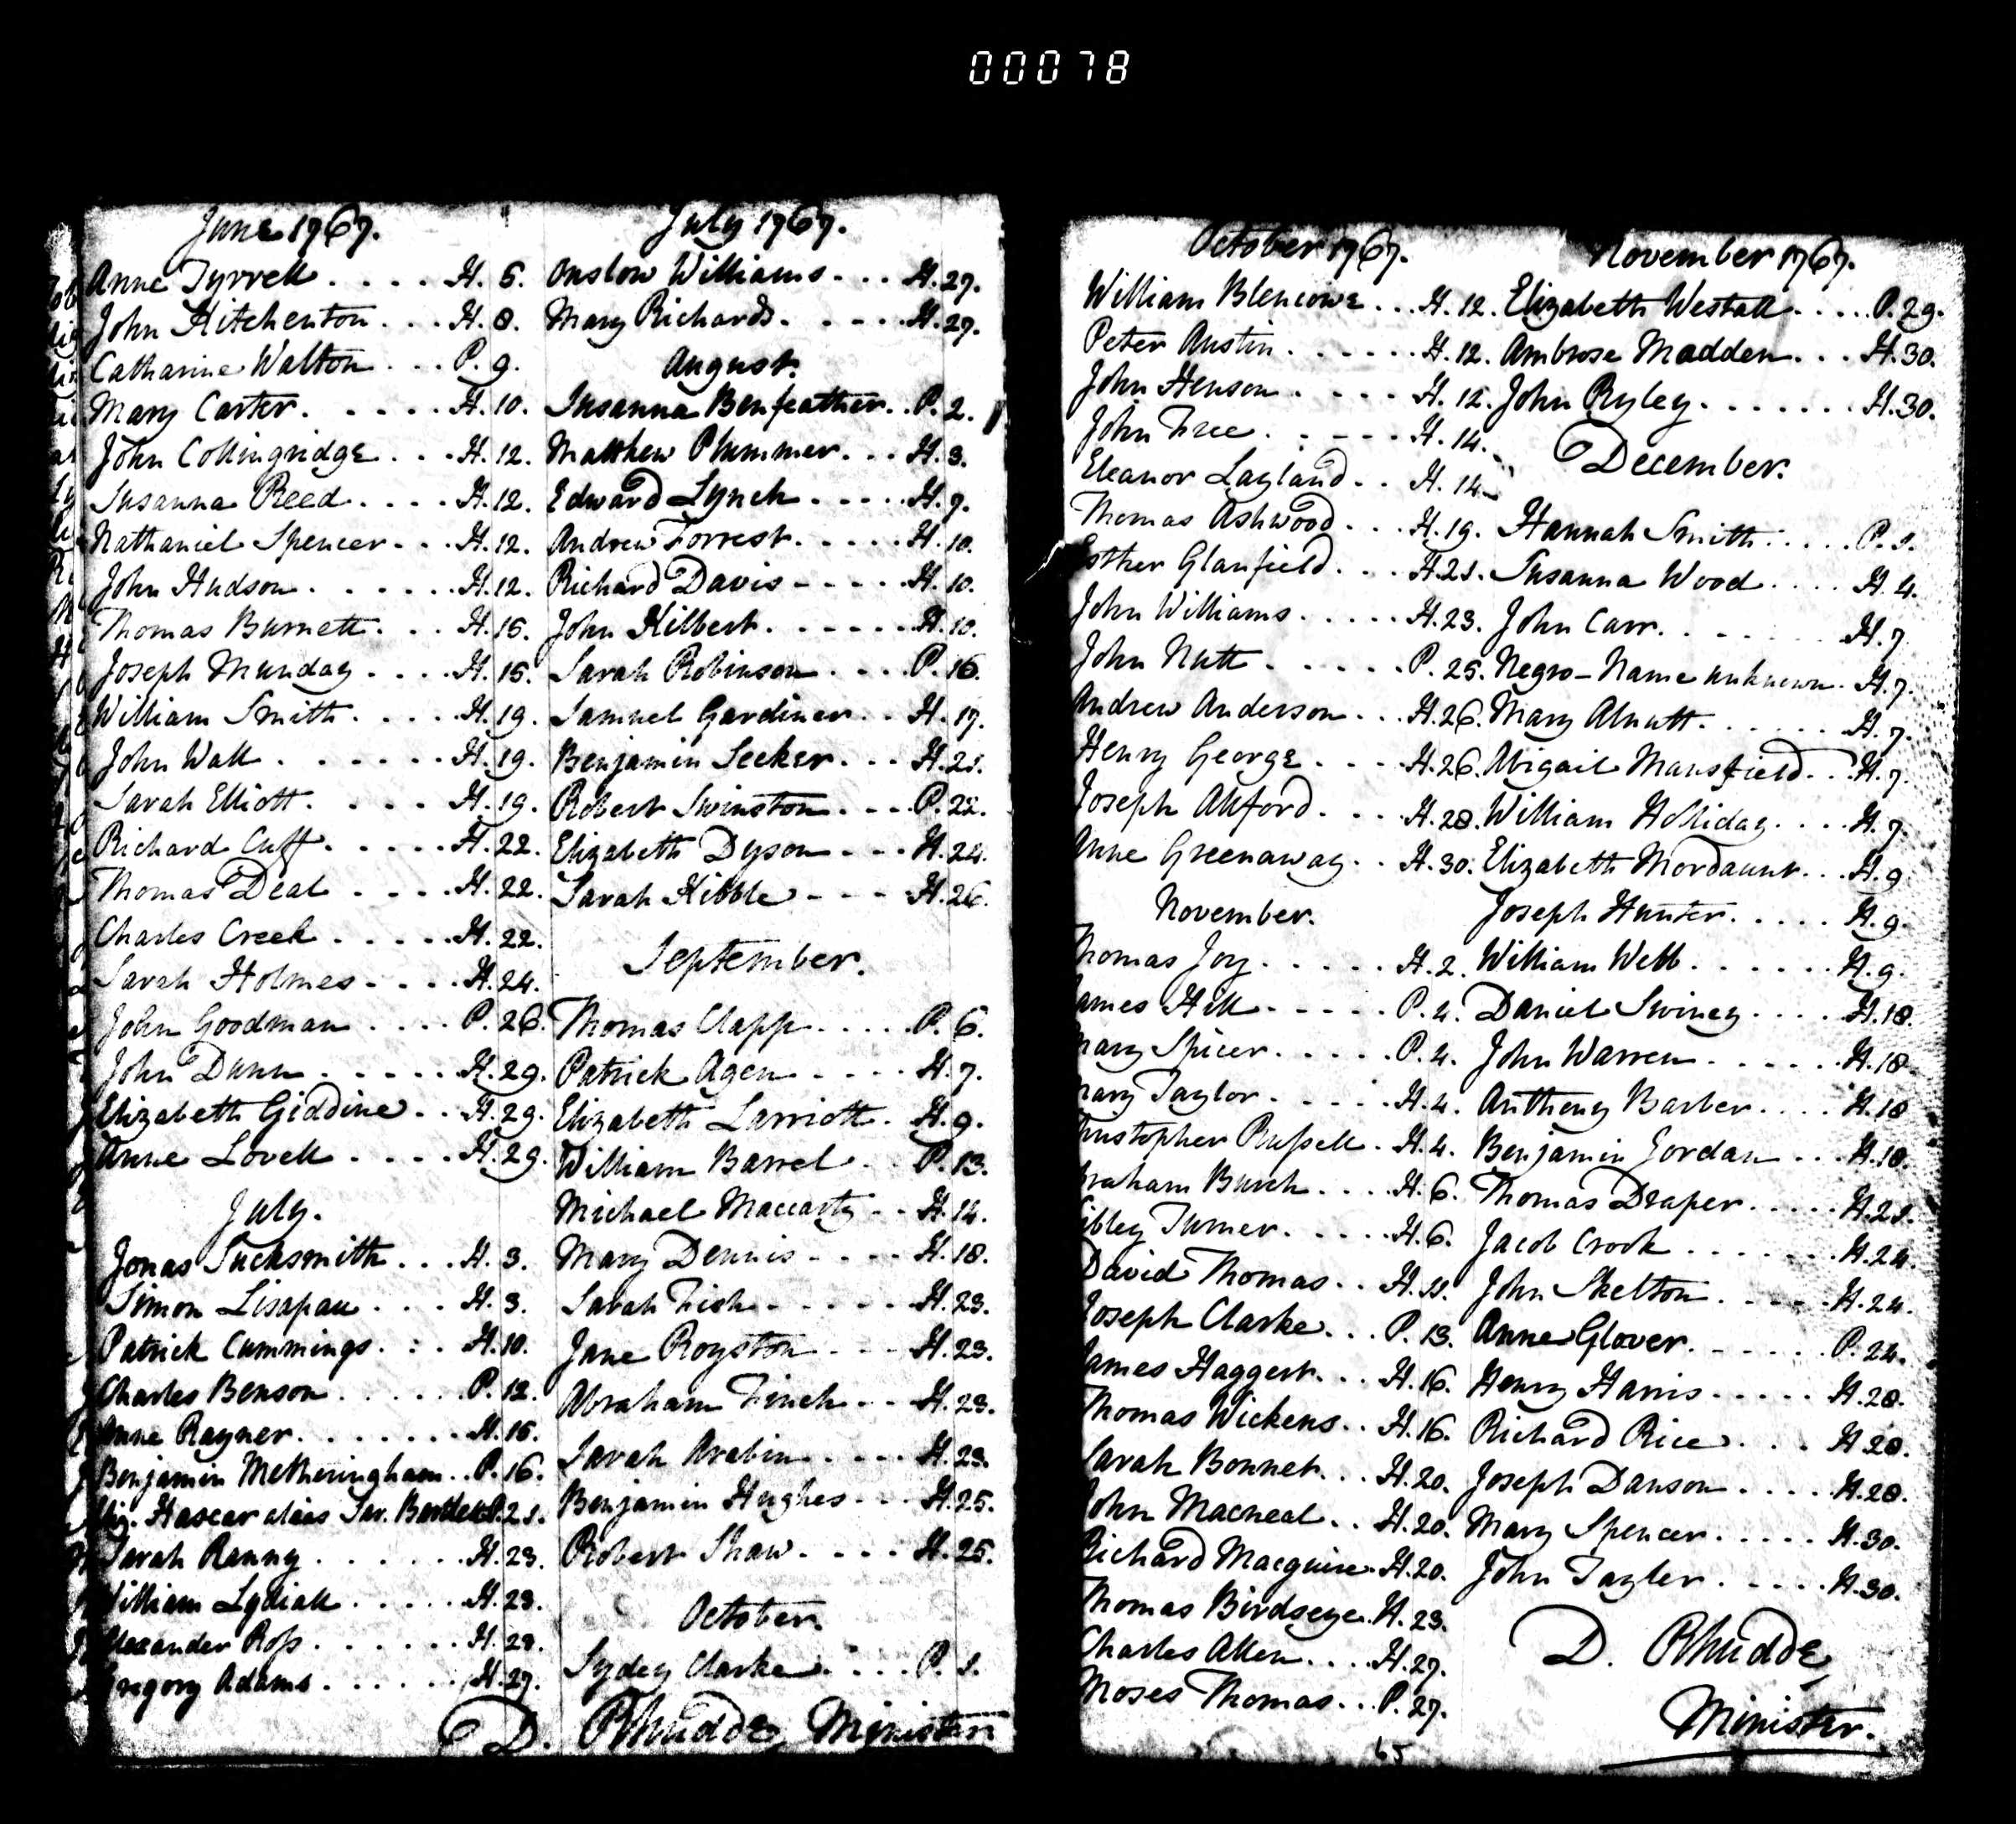 00078
June 1767.
Anne Tyrrell . . . . H. 5.
John Kitchenton . . . H. 8.
Catharine Walton . . . P. 9.
Mary Carter. . . . . H. 10.
John Collingridge . . . H. 12.
Susanna Reed . . . . H. 12.
Nathaniel Spencer . . . H. 12.
John Hudson . . . . . H. 12.
Thomas Burnett . . . H. 15.
Joseph Munday . . . . H. 15.
William Smith . . . . H. 19.
John Wall . . . . . . H. 19.
Sarah Elliott . . . . H. 19.
Richard Cuff . . . . . H. 22.
Thomas Deal . . . . H. 22.
Charles Creek . . . . . H. 22.
Sarah Holmes . . . . H. 24.
John Goodman . . . . P. 26.
John Dunn . . . . . H. 29.
Elizabeth Giddine . . H. 29.
Anne Lovell . . . . H. 29.
July.
Jonas Sucksmith . . . H. 3.
Simon Lisapau . . . H. 3.
Patrick Cummings . : . H. 10.
Charles Benson . . . . . P. 12.
Anne Rayner . . . . . . H. 15.
Benjamin Metheringham . . P. 16.
Eliz. Hascar alias Sar. Bartlett P. 21.
Sarah Ranny . . . . . . H. 23.
William Lydiall . . . . . H. 23.
Alexander Ross . . . . . . H. 23.
Gregory Adams . . . . . . H. 27.
July 1767.
Onslow Williams . . . H. 27.
Mary Richards . . . . . H. 27.
August.
Susanna Benfeather . . P. 2.
Matthew Plummer . . . H. 3.
Edward Lynch . . . . . H. 7.
Andrew Forrest . . . . . H. 10.
Richard Davis . . . . . H. 10.
John Hilbert . . . . . . H. 10.
Sarah Robinson . . . . P. 16.
Samuel Gardiner . . . H. 17.
Benjamin Seeker . . . H. 21.
Robert Swinston . . . P. 22.
Elizabeth Dyson . . . H. 24.
Sarah Kibble . . . . H. 26.
September.
Thomas Clapp . . . . . P. 6.
Patrick Agen . . . . H. 7.
Elizabeth Larriott . H. 9.
William Barrel . . P. 13.
Michael Maccarty . . H. 14.
Mary Dennis . . . . H. 18.
Sarah Fish . . . . . . H. 23.
Jane Royston . . . H. 23.
Abraham Finch . . . H. 23.
Sarah Arabin . . . . H. 23.
Benjamin Hughes . . . H. 25.
Robert Shaw . . . . H. 25.
October.
Sydey Clarke . . . . P. 1.
D. Rhudde, Minister
October 1767.
William Blencowe . . . H. 12.
Peter Austin . . . . . . H. 12.
John Henson . . . . H. 12.
John Free . . . . . H. 14.
Eleanor Layland . . H. 14.
Thomas Ashwood . . . H. 19.
Esther Glanfield . . . H. 21.
John Williams . . . . . H. 23.
John Nutt . . . . . P. 25.
Andrew Anderson . . . H. 26.
Henry George . . . . H. 26.
Joseph Alford . . . H. 28.
Anne Greenaway . . H. 30.
November.
Thomas Joy . . . . . H. 2.
James Hill . . . . . P. 4.
Mary Spicer . . . . . P. 4.
Mary Taylor . . . . . H. 4.
Christopher Russell . H. 4.
Abraham Burch . . . . H. 6.
Sibley Turner . . . . . H. 6.
David Thomas . . H. 11.
Joseph Clarke . . . P. 13.
James Haggert . . . H. 16.
Thomas Wickens . . H. 16.
Sarah Bonnet . . . H. 20.
John Macneal . . H. 20.
Richard Macguire . H. 20.
Thomas Birdseye . H. 23.
Charles Allen . . . . H. 27.
Moses Thomas . . . P. 27.
65
November 1767.
Elizabeth Westall . . . . P. 29.
Ambrose Madden . . . H. 30.
John Ryley . . . . . . H. 30.
December.
Hannah Smith . . . . . P. 1.
Susanna Wood . . . . H. 4.
John Carr . . . . . . . H. 7.
Negro - Name unknown . H. 7.
Mary Alnutt . . . . . . H. 7.
Abigail Mansfield . . H. 7.
William Holliday . . . . H. 7.
Elizabeth Mordaunt . . . H. 9.
Joseph Hunter . . . . . H. 9.
William Webb . . . . . . H. 9.
Daniel Swiney . . . . H. 18.
John Warren . . . . . H. 18.
Anthony Barber . . . . H. 18
Benjamin Jordan . . . H. 18.
Thomas Draper . . . . . H. 21.
Jacob Crook . . . . . . . H. 24.
John Skelton . . . . . H. 24.
Anne Glover . . . . . . P. 24.
Henry Harris . . . . . H. 28.
Richard Rice . . . . H. 28.
Joseph Danson . . . . H. 28.
Mary Spencer . . . . . H. 30.
John Tayler . . . . . H. 30.
D. Rhudde,
Minister.